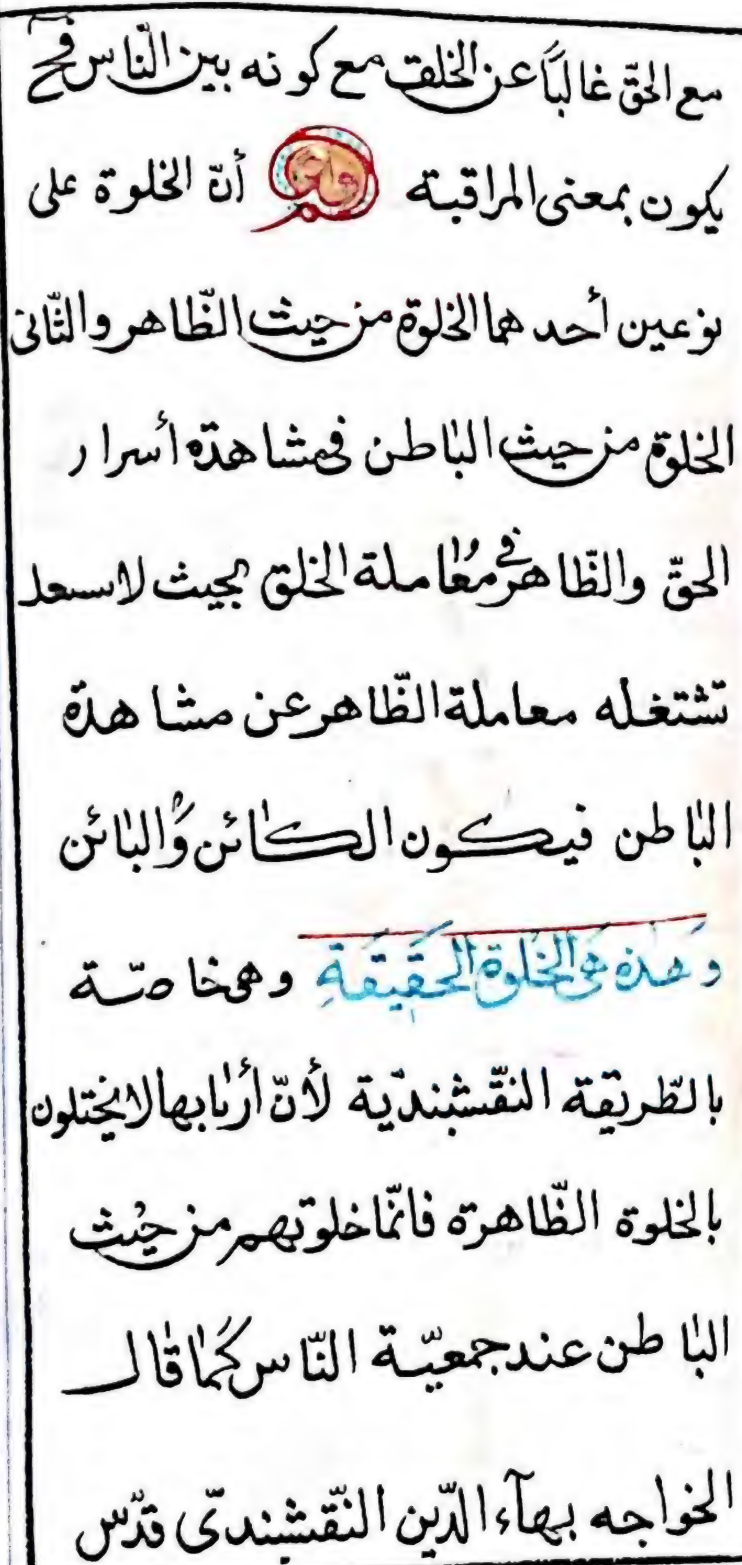 مع الحقّ غالبًا عن الخلق مع كونه بين النّاس فح
يكون بمعنى المراقبة أنّ الخلوة على
نوعين أحدهما الخلوة من حيث الظّاهر والثّانى
الخلوة من حيث الباطن فمشاهدة أسرار
الحقّ والظّاهر فى معاملة الخلق بحيث لا
تشتغله معاملة الظّاهر عن مشاهدة
الباطن فيكون الكائن والبائن
وهذه هى الخلوة الحقيقة وهى خاصّة
بالطّريقة النقّشبنديّة لأنّ أربابها لا يختلون
بالخلوة الظّاهرة فانّما خلوتهم من حيث
الباطن عند جمعيّة النّاس كما قال
الخواجه بهآء الدّين النقّشبندىّ قدّس